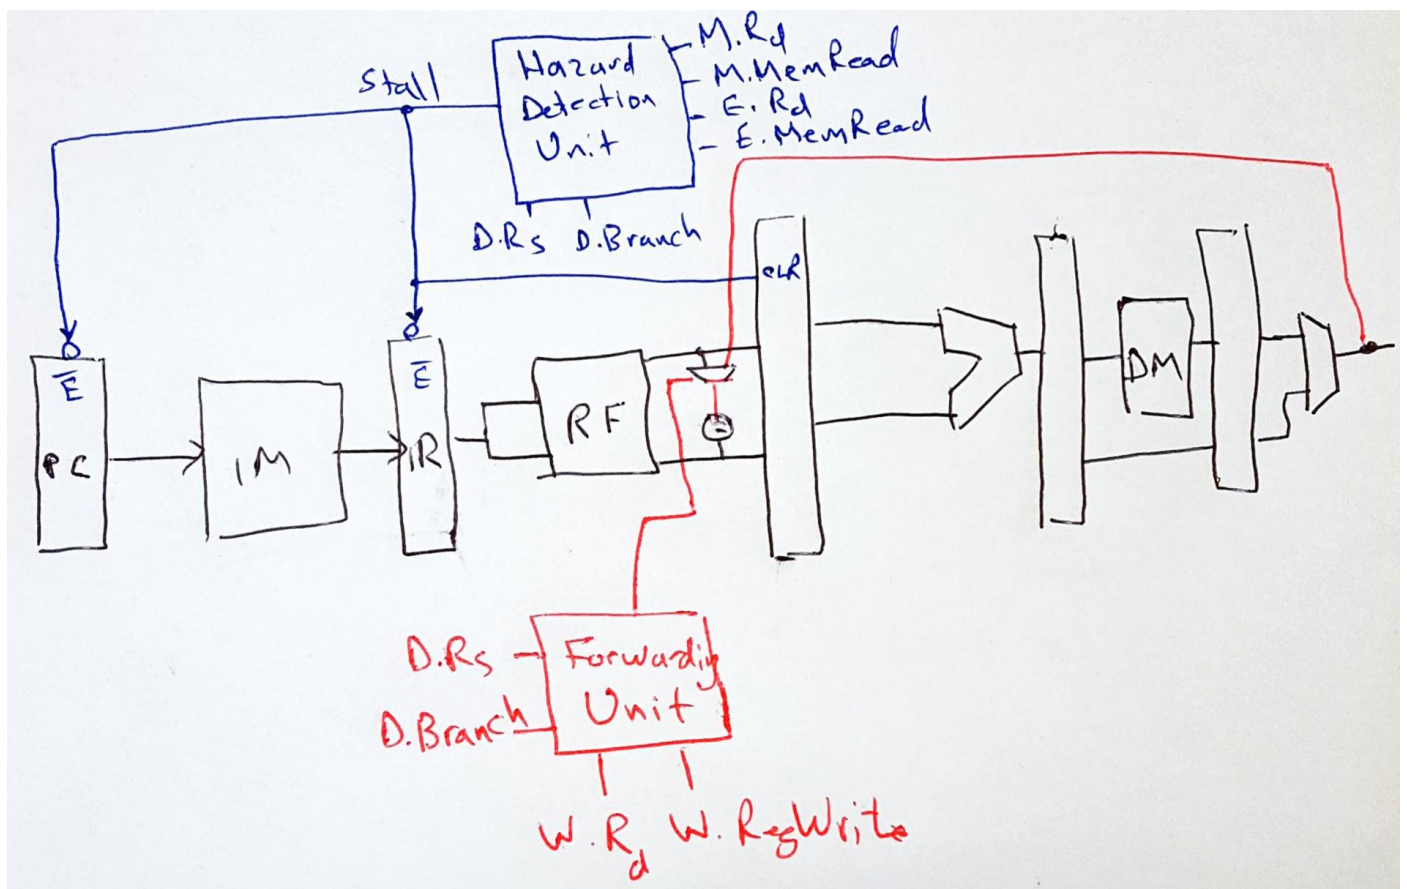 Stall
Hazard
Detection
Unit
M.Rd
M.MemRead
E.Rd
E.MemRead
D.Rs D.Branch
CLR
E̅
PC
IM
E̅
IR
RF
=
DM
D.Rs
D.Branch
Forwardig
Unit
W.Rd W.RegWrite